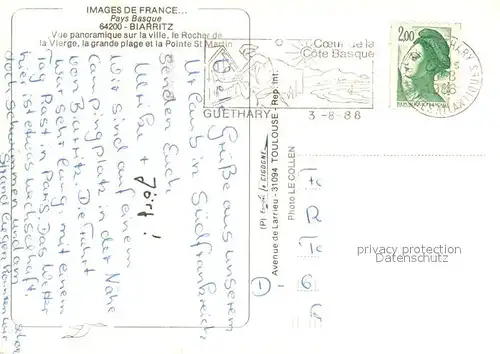 IMAGES DE FRANCE...
Pays Basque
64200 - BIARRITZ
Vue panoramique sur la ville, le Rocher de
la Vierge, la grande plage et la Pointe St Martin
Viele Grüße aus unserem
Urlaub in Südfrankreich
senden Euch
Ulrike + Jörg!
Wir sind auf einem
Campingplatz in der Nähe
von Biarritz. Die Fahrt
war sehr lang, mit einem
Tag Rast in Paris. Das Wetter
hier ist etwas wechselhaft,
doch Schwimmen und am
Strand liegen konnten wir
Cœur de la
Côte Basque
GUETHARY
3-8-86
2,00
REPUBLIQUE FRANÇAISE
GUETHARY
PYRENEES ATLANTIQUES
(P) by LA CIGOGNE
Avenue de Larrieu - 31094 TOULOUSE - Rep. Int.
Photo LE COLLEN
privacy protection
Datenschutz